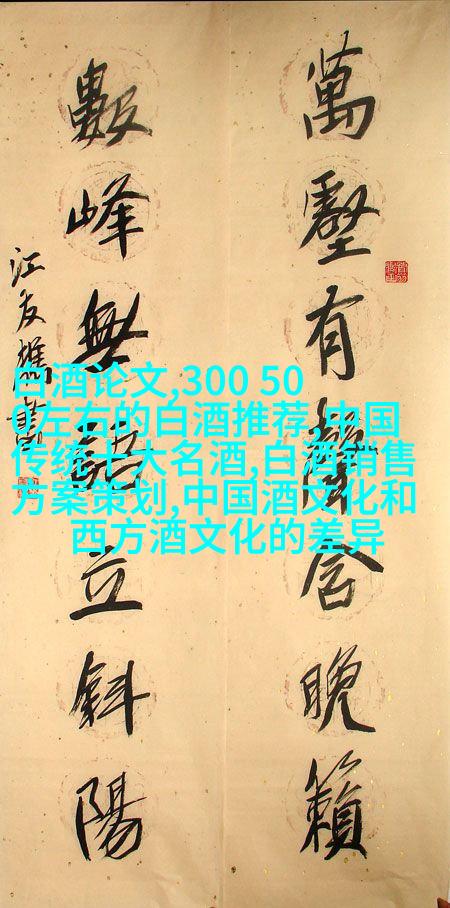 萬壑有聲含晚籟
數峰無語立斜陽
江友樵書
白酒论文,300 50
0左右的白酒推荐,中国
传统十大名酒,白酒销售
方案策划,中国酒文化和
西方酒文化的差异